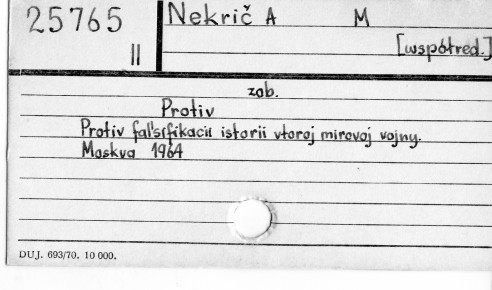 25765
II
Nekrič A M
[wspótred.]
zob.
Protiv
Protiv falʹsifikacii istorii vtoroj mirovoj vojny.
Moskva 1964
DUJ. 693/70. 10 000.